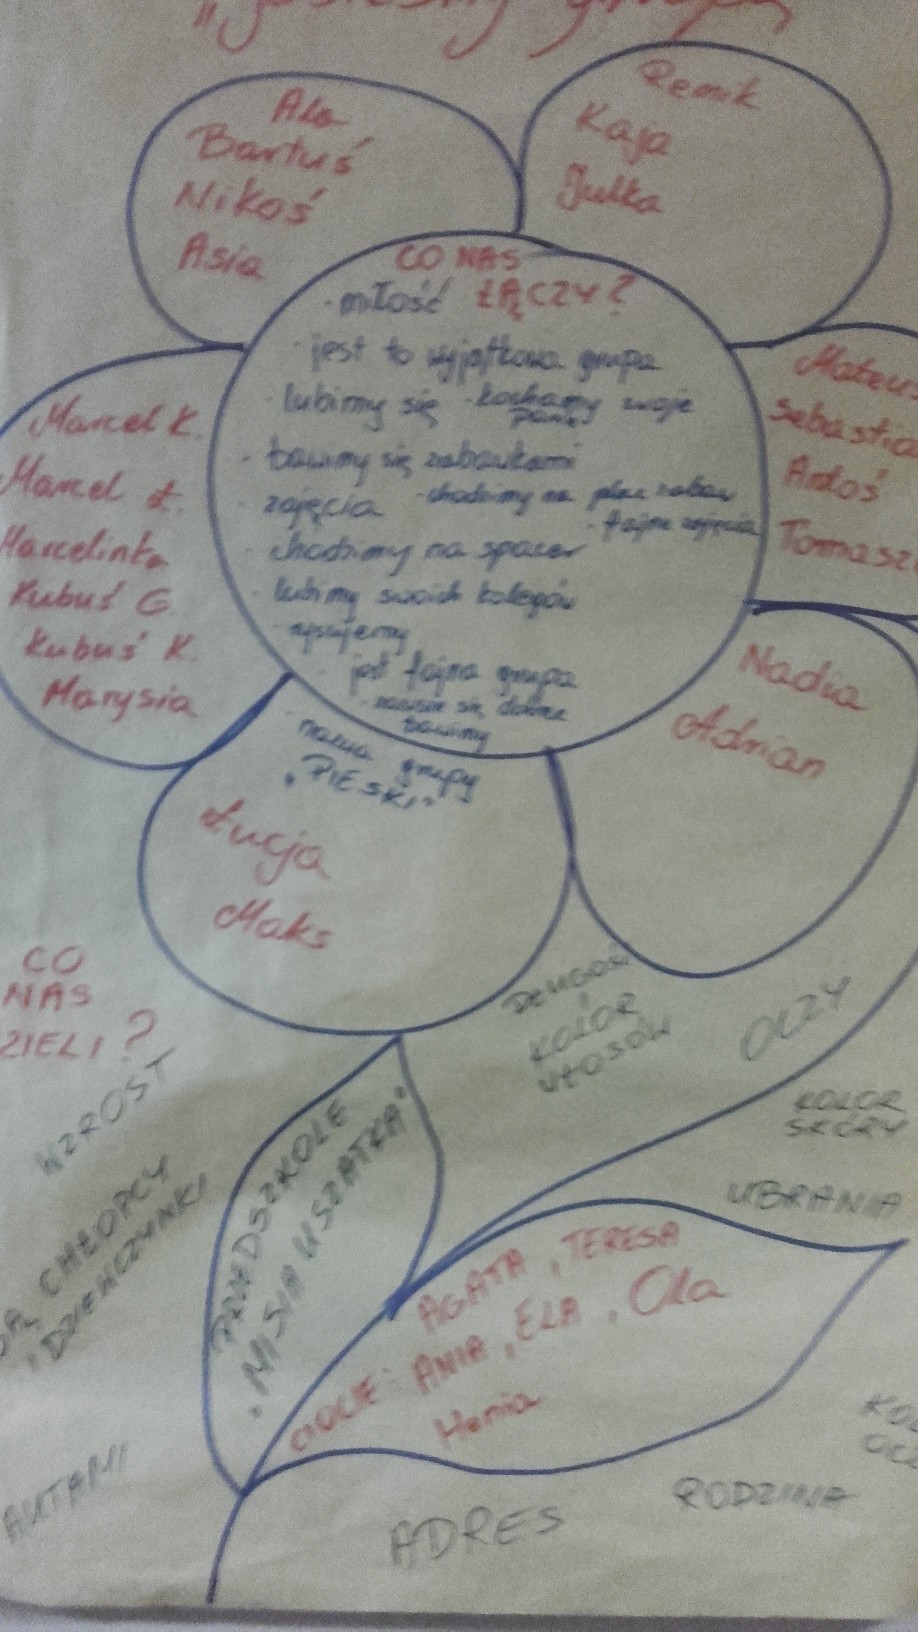 „Jesteśmy grupą
Ala
Bartuś
Nikoś
Asia
Remik
Kaja
Julka
CO NAS
ŁĄCZY?
- miłość
- jest to wyjątkowa grupa
- lubimy się - kochamy swoje
panie
- bawimy się zabawkami
- zajęcia - chodzimy na plac zabaw
- fajne zajęcia
- chodzimy na spacer
- lubimy swoich kolegów
- rysujemy
- jest fajna grupa
- zawsze się dobrze
bawimy
- nazwa grupy
„PIESKI"
Mateu
Sebastia
Antoś
Tomasz
Marcel K.
Marcel Ł.
Marcelinka
Kubuś G.
Kubuś K.
Marysia
Nadia
Adrian
Łucja
Maks
CO
NAS
ZIELI?
WZROST
SĄ CHŁOPCY
I DZIEWCZYNKI
AUTAMI
DŁUGOŚĆ
I
KOLOR
WŁOSÓW
OCZY
KOLOR
SKÓRY
UBRANIA
PRZEDSZKOLE
„MISIA USZATKA"
AGATA, TERESA
CIOCIE: ANIA, ELA, Ola
Henia
KOL
OCZ
RODZINA
ADRES